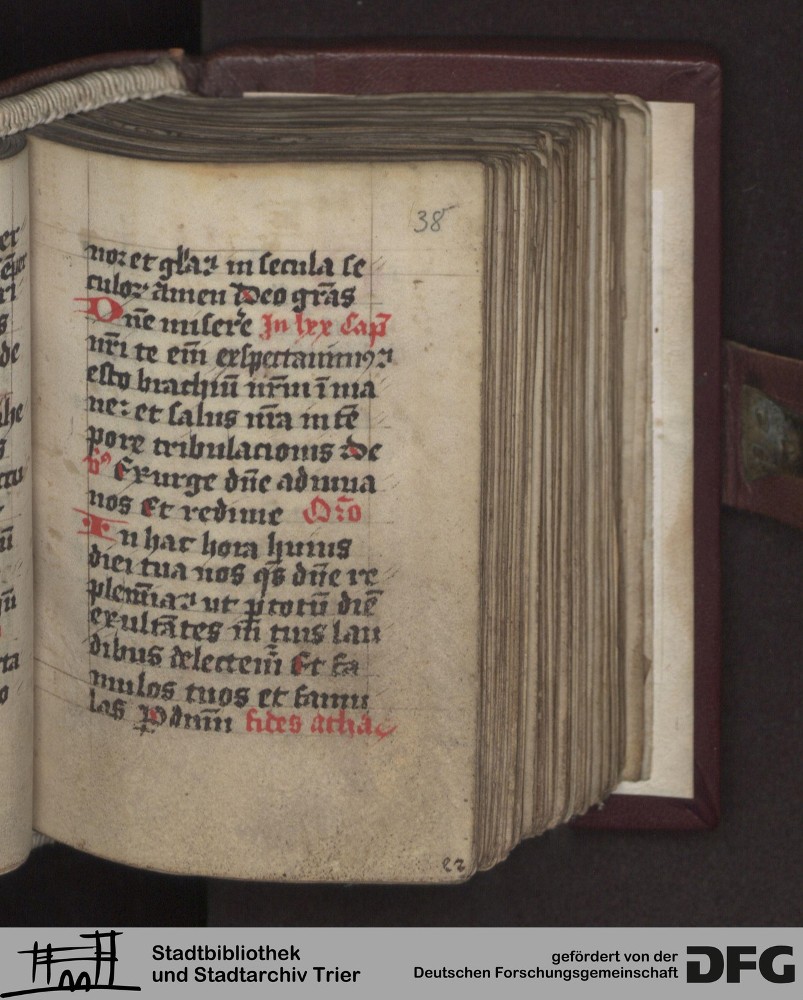 38
nor et glaꝫ in secula se
culor amen Deo gras
Dne misere In lxx Cap
nri te em exspectauimus ꝫ
esto brachiu nrm i ma
ne: et salus nra in te
pore tribulacionis De
v Exurge dne adiuua
nos Et redime Oro
In hac hora huius
diei tua nos qs dne re
plem miaꝫ ut p totu die
exultates in tuis lau
dibus delectem Et fa
mulos tuos et famu
las P dnm fides atha
22
Stadtbibliothek
und Stadtarchiv Trier
gefördert von der
Deutschen Forschungsgemeinschaft
DFG